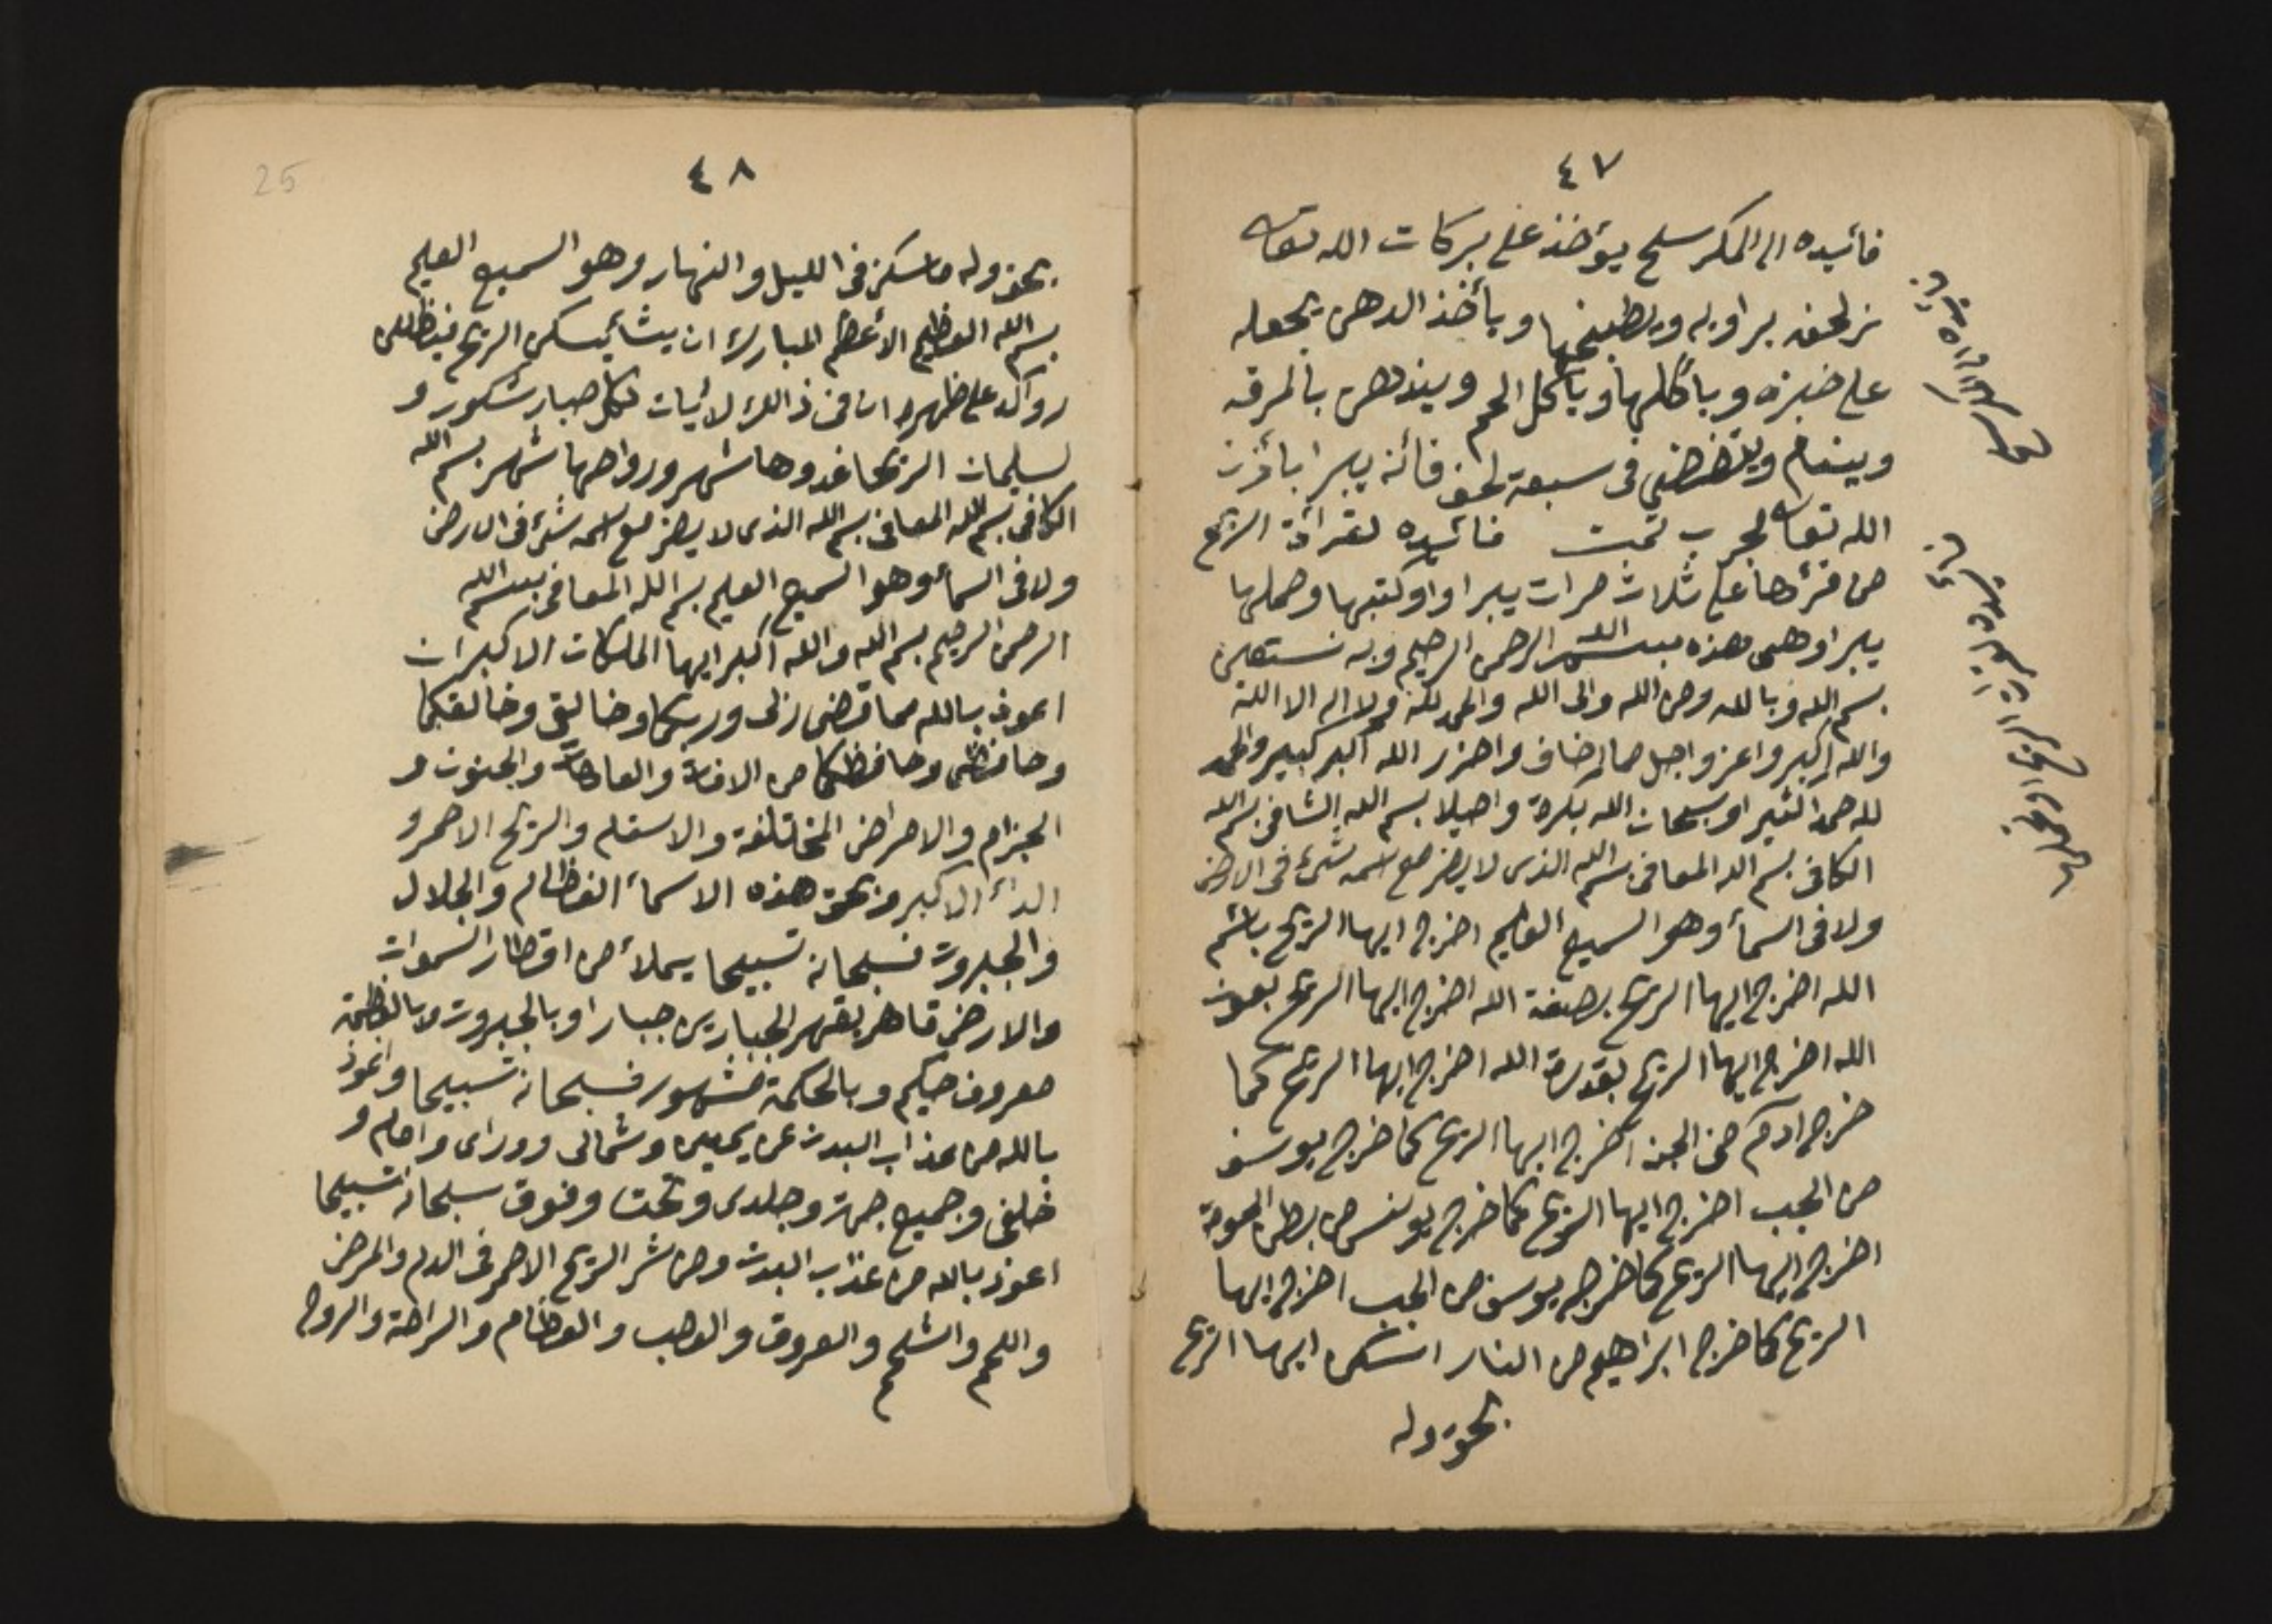 ٤٧
فائيده الى المكرسلح يؤخذ على بركات الله تعالى
براويه ويطبخها ويأخذ الدهن يجعله
على خبزه وياكلها وياكل الحم ويندهن بالمرقه
وينام في سبعة فانه يبرا بأذن
الله تعالى مجرب تمت فائيده لقرائة الريح
من قرئها على ثلاث مرات يبرا او كتبها وحملها
يبرا وهى هذه بسم الله الرحمن الرحيم وبه نستعين
بسم الله وبالله ومن الله والى الله والحمد لله ولا اله الا الله
والله اكبر واعز واجل مما نخاف واحزر الله اكبر كبير والحمد
لله حمدا كثيرا وسبحان الله بكرة واصيلا بسم الله الشافى بسم الله
الكافى بسم الله المعافى بسم الله الذى لا يضر مع اسمه شئ فى الارض
ولا فى السمأ وهو السميع العليم اخرج ايها الريح بأسم
الله اخرج ايها الريح بصفة الله اخرج ايها الريح بعون
الله اخرج ايها الريح بقدرة الله اخرج ايها الريح كما
خرج ادم من الجنه اخرج ايها الريح كما خرج يوسف
من الجب اخرج ايها الريح كما خرج يونس من بطن الحوت
اخرج ايها الريح كما خرج يوسف من الجب اخرج ايها
الريح كما خرج ابراهيم من النار اسكن ايها الريح
بحق وله
٤٨
25
بحق وله ما سكن فى الليل والنهار وهو السميع العليم
بسم الله العظيم الأعظم المبارك ان يشأ يسكن الريح فيظللن
رواكد على ظهره ان فى ذالك لأيات لكل صبار شكور و
لسليمان الريحا غدوها شهر ورواحها شهر بسم الله
الكافى بسم الله المعافى بسم الله الذى لا يضر مع اسمه شئ فى الارض
ولا فى السمأ وهو السميع العليم بسم الله المعافى بسم الله
الرحمن الرحيم بسم الله والله اكبر ايها الملكات الاكبران
اعوذ بالله مما قضى ربى وربكما وخالقى وخالقكما
وحافظى وحافظكما من الافاة والعاهاة والجنون و
الجزام والامراض المختلفة والاسقام والريح الاحمر و
الدأ الاكبر وبحق هذه الاسمأ العظام والجلال
والجبروت فسبحانه تسبيحا يملأ من اقطار السموات
والارض قاهر بقهر الجبارين جبارا وبالجبروت وبالعظمة
معروف حكيم وبالحكمة مشهور فسبحانه تسبيحا واعوذ
بالله من عذاب البدن عن يمينى وشمالى وورائى وامام و
خلفى وجميع جهة وجلدى وتحت وفوق سبحانه تسبيحا
اعوذ بالله من عذب البدن ومن شر الريح الاحمر فى الدم والمرض
واللحم والشلحم والعروق والعصب والعظام والراحة والروح